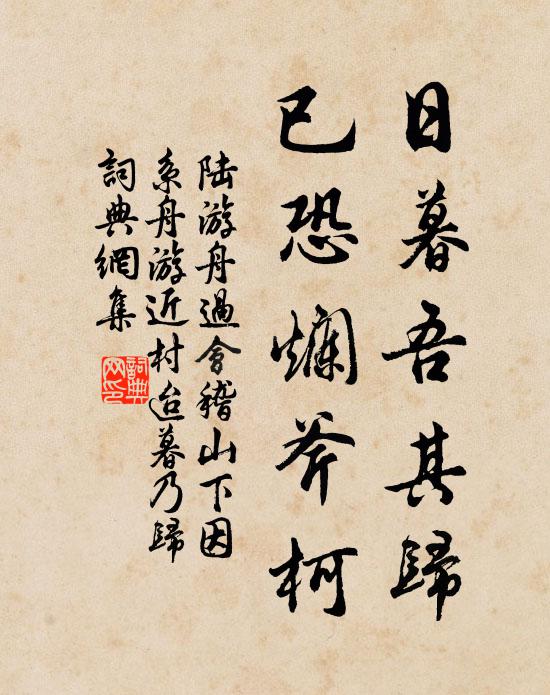 日暮吾其歸
已恐爛斧柯
陸游舟過會稽山下因
系舟游近村迨暮乃歸
詞典網集
詞典網印